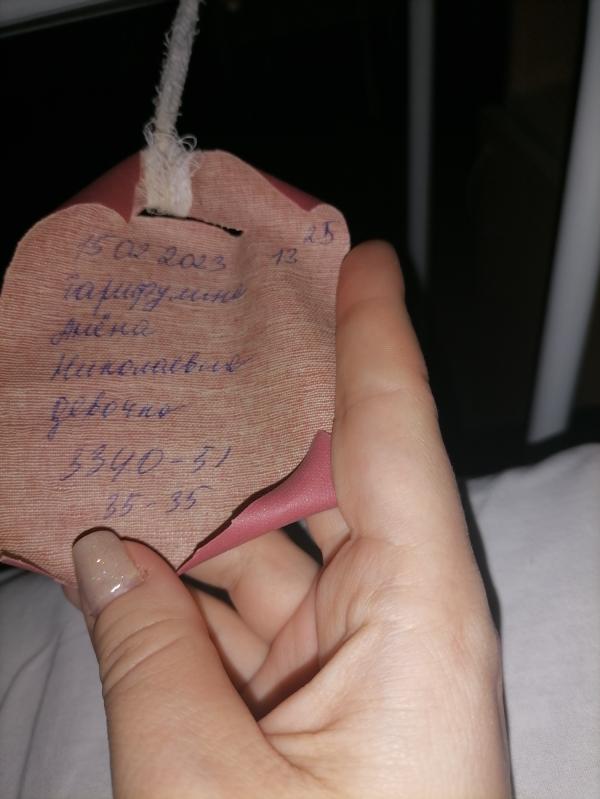 15 02 2023 13 25
Гарифулина
Алёна
Николаевна
девочка
3340-51
35-35